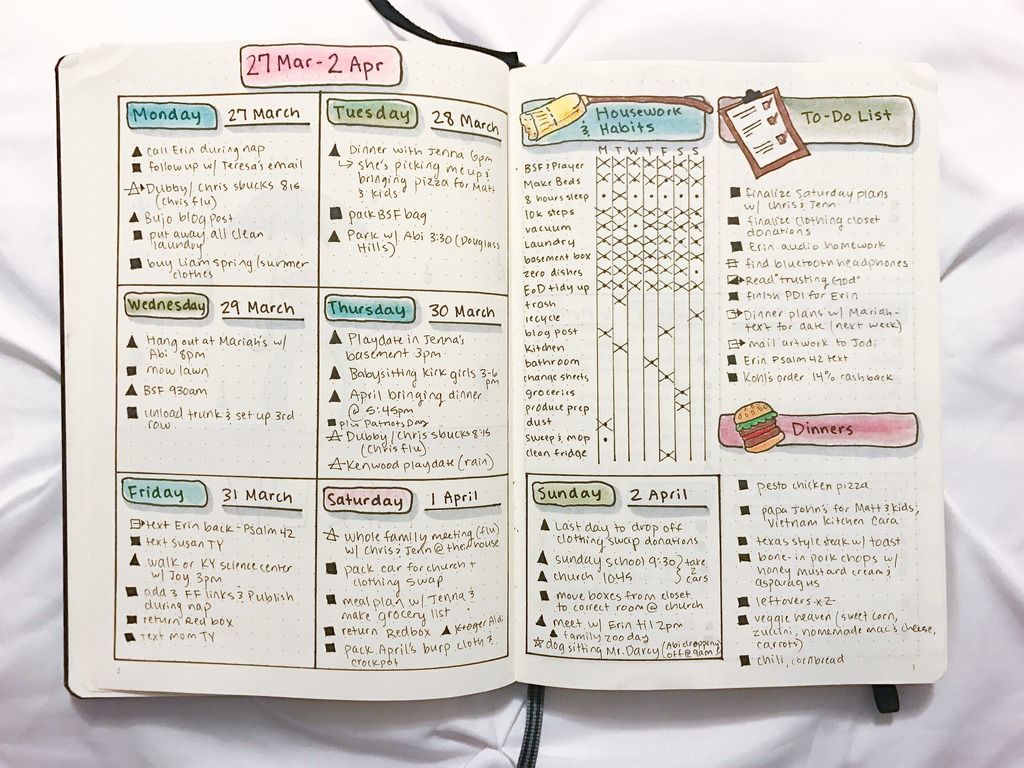 27 Mar - 2 Apr
Monday 27 March
call Erin during nap
follow up w/ Teresa's email
Dubby/Chris sbucks 8:15
(chris flu)
Bujo blog post
put away all clean
laundry
buy Liam spring/summer
clothes
Tuesday 28 March
Dinner with Jenna 6pm
↳ she's picking me up &
bringing pizza for Matt
& kids
pack BSF bag
Park w/ Abi 3:30 (Douglass
Hills)
Wednesday 29 March
Hang out at Mariah's w/
Abi 8pm
mow lawn
BSF 930am
unload trunk & set up 3rd
row
Thursday 30 March
Playdate in Jenna's
basement 3pm
Babysitting Kirk girls 3-6
pm
April bringing dinner
@ 5:45pm
plan Patriots Day
Dubby/Chris sbucks 8:15
(Chris flu)
Kenwood playdate (rain)
Friday 31 March
text Erin back - Psalm 42
text Susan TY
walk or KY science center
w/ Joy 3pm
add 3 FF links & Publish
during nap
return Redbox
text mom TY
Saturday 1 April
whole family meeting (flu)
w/ Chris & Jenn @ the house
pack car for church +
clothing swap
meal plan w/ Jenna &
make grocery list
return Redbox Kroger Aldi
pack April's burp cloth &
crockpot
2
& Housework
Habits
M T W T F S S
BSF & Prayer
Make Beds
8 hours sleep
10k steps
vacuum
Laundry
basement box
zero dishes
EoD tidy up
trash
recycle
blog post
kitchen
bathroom
change sheets
groceries
produce prep
dust
sweep & mop
clean fridge
Sunday 2 April
Last day to drop off
clothing swap donations
sunday school 9:30 } take
church 1045 } 2 cars
move boxes from closet
to correct room @ church
meet w/ Erin til 2pm
family zoo day
dog sitting Mr. Darcy (Abi dropping
off @ 9am)
To-Do List
finalize Saturday plans
w/ Chris & Jenn
finalize clothing closet
donations
Erin audio homework
find bluetooth headphones
Read "Trusting God"
finish PDI for Erin
Dinner plans w/ Mariah-
text for date (next week)
mail artwork to Jodi
Erin Psalm 42 text
Kohl's order 14% cash back
Dinners
pesto chicken pizza
papa John's for Matt & kids;
Vietnam Kitchen Cara
texas style steak w/ toast
bone-in pork chops w/
honey mustard cream &
asparagus
leftovers x2
veggie heaven (sweet corn,
zuccini, homemade mac & cheese,
carrots)
chili, cornbread
3